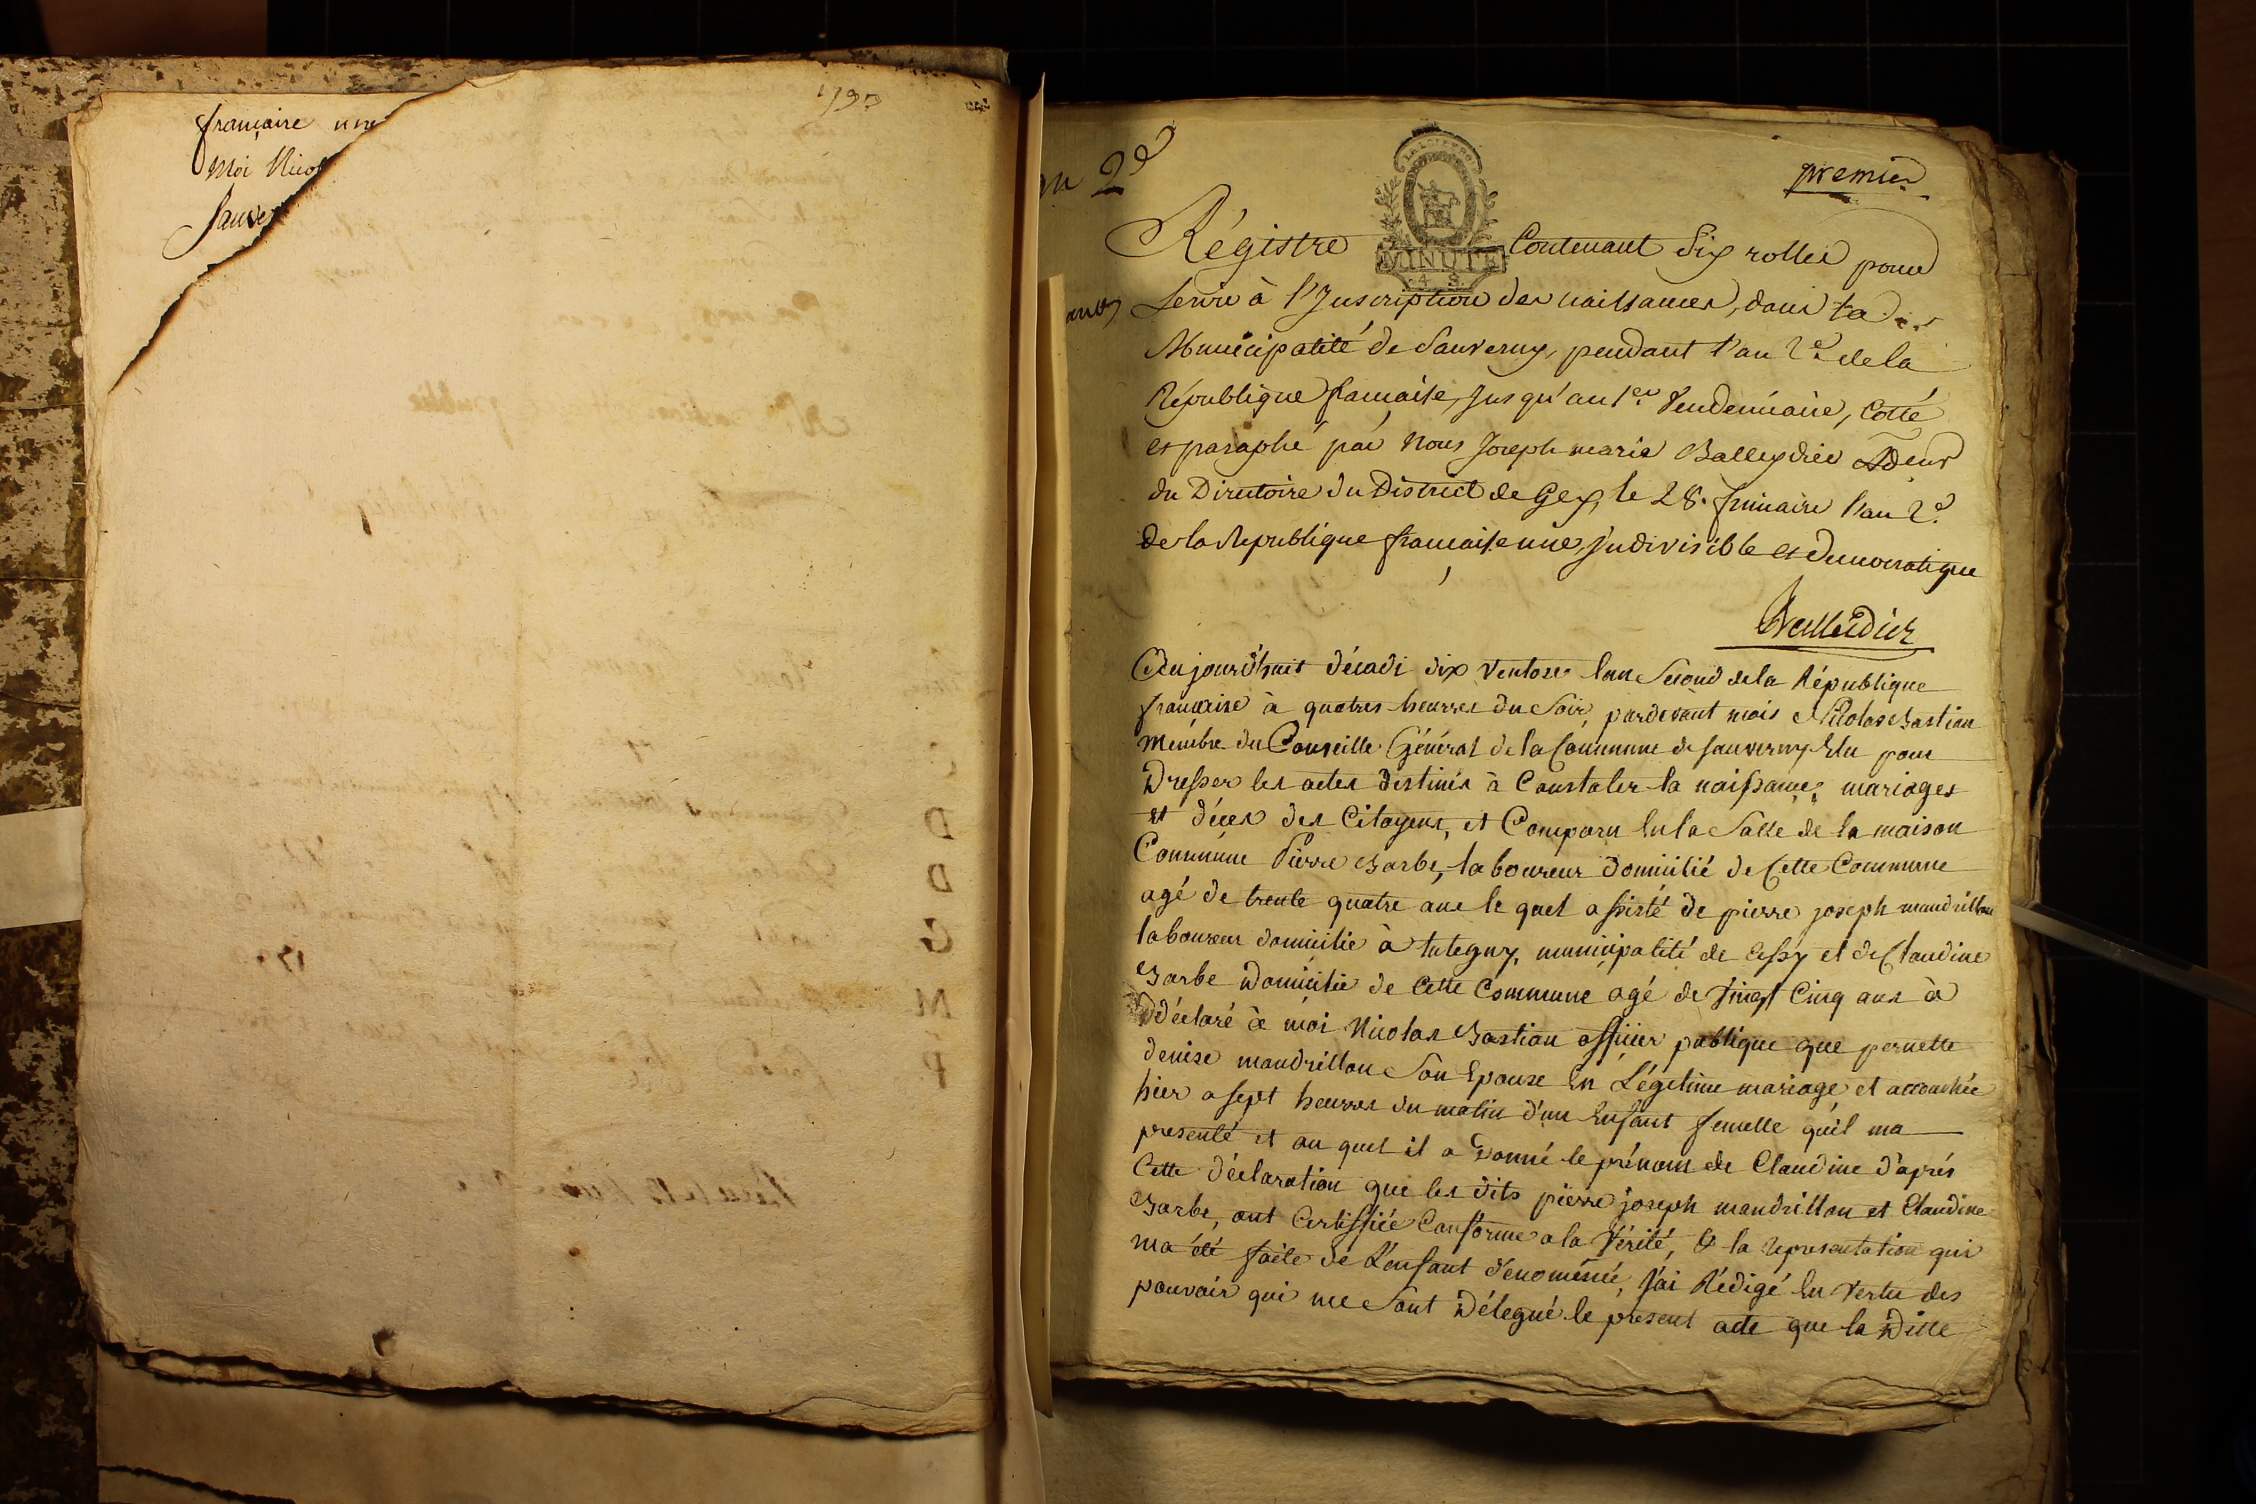 française une
moi Nicol
Sauver
1793
an 2e
premier
MINUTE
4 S.
Régistre Contenant Six rolles pour
Servir à l'Inscription des naissances, dans la
Municipalité de Sauverny, pendant l'an 2e de la
République française, Jusqu'au 1er Vendemiaire, Cotté
et paraphé par Nous Joseph marie Balleydier
du Directoire du District de Gex, le 28. frimaire l'an 2e
de la République française une, indivisible et Democratique
Balleidier
Aujourd'huit décadi dix Ventose lan Second de la République
française à quatres heurres du Soir, pardevant mois Nicolas Bastian
membre du Conseille Général de la Commune de Sauverny Elu pour
Dresser les actes destinés à Constater la naissance, mariages
et décès des Citoyens, et Comparu En la Salle de la maison
Commune Pierre Barbe, laboureur domicilié de Cette Commune
agé de trente quatre ans le quel assisté de pierre joseph mandrillon
laboureur domicilie à tutegny, municipalité de Cessy et de Claudine
Barbe Domicilie de Cette Commune agé de Vingt Cinq ans à
Déclaré à moi Nicolas Bastian officier publique que pernette
denise mandrillon Son Epouse En Légetime mariage et accouchée
hier a sept heurres du matin d'un Enfant femelle qu'il ma
presenté et au quel il a Donné le prénom de Claudine d'aprés
Cette déclaration que les dits pierre joseph mandrillon et Claudine
Barbe, ont Certiffiée Conforme a la Vérité, & la représentation qui
ma été faite de L'enfant dénomméé, J'ai Rédigé En Vertu des
pouvoir qui me Sont Délegué le présent acte que la Ditte